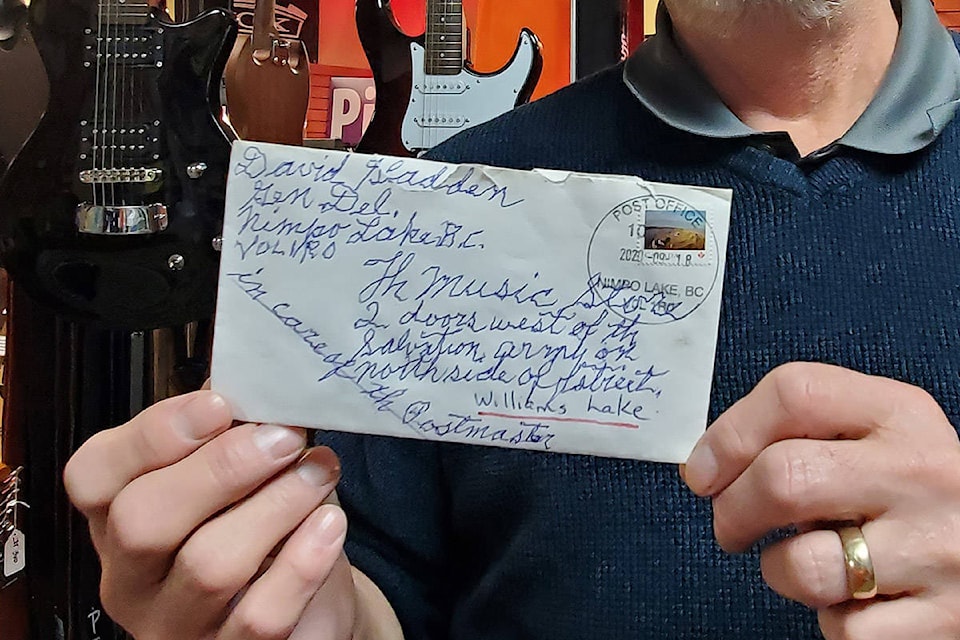 David Gladden
Gen Del.
Nimpo Lake B.C.
VOL 1R0
in care of th Postmaster
Th Music Store
2 doors west of th
Salvation army on
north side of street.
Williams Lake.
POST OFFICE
NIMPO LAKE, BC
Pi